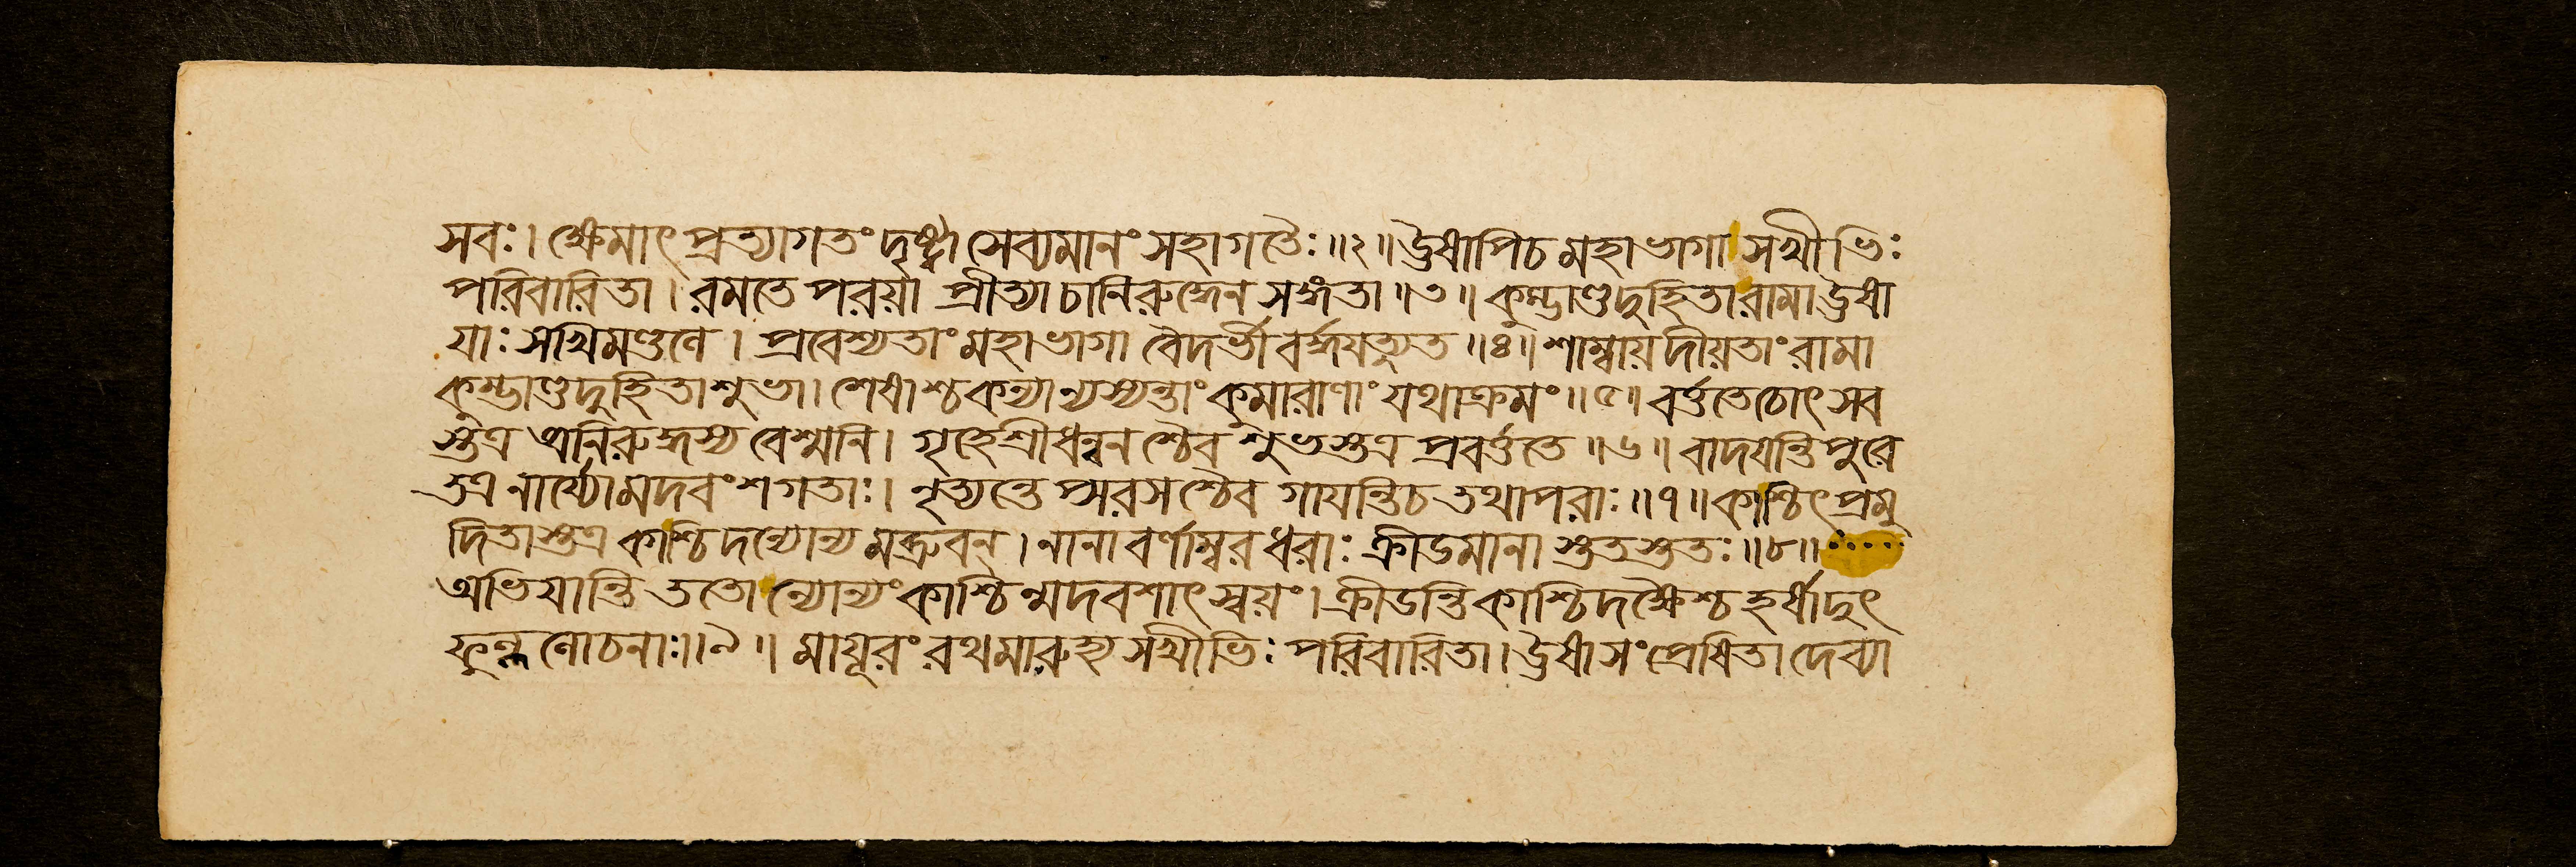 সবঃ। ক্ষেমাৎ প্রত্যাগতং দৃষ্ট্বা সেব্যমানং সহাগতৈঃ॥২॥ ঊষাপি চ মহাভাগা সখীভিঃ
পরিবারিতা। রমতে পরয়া প্রীত্যা চানিরুদ্ধেন সঙ্গতা॥৩॥ কুম্ভাণ্ডদুহিতা রামা ঊষা
যাঃ সখিমণ্ডলে। প্রবেশ্যতাং মহাভাগা বৈদর্ভী বর্দ্ধযত্যুত॥৪॥ শাম্বায় দীয়তাং রামা
কুম্ভাণ্ডদুহিতা শুভা। শেষাশ্চ কন্যা ন্যস্যন্তাং কুমারাণাং যথাক্রমং॥৫॥ বর্ত্ততে চোৎসব
স্তত্র অনিরুদ্ধস্য বেশ্মনি। গৃহে শ্রীধন্বনশ্চৈব শুভস্তত্র প্রবর্ত্ততে॥৬॥ বাদযন্তি পুরে
তত্র নার্য্যো মদবংশগতাঃ। নৃত্যন্তে প্সরসশ্চৈব গাযন্তি চ তথাপরাঃ॥৭॥ কাশ্চিৎ প্রমু
দিতাস্তত্র কাশ্চিদন্যোন্যমব্রুবন্। নানাবর্ণাম্বরধরাঃ ক্রীডমানা স্ততস্ততঃ॥৮॥
অভিযান্তি ততো ন্যোন্যং কাশ্চিন্মদবশাৎ স্বয়ং। ক্রীডন্তি কাশ্চিদক্ষৈশ্চ হর্ষাদুৎ
ফুল্ললোচনাঃ॥৯॥ মায়ূরং রথমারুহ্য সখীভিঃ পরিবারিতা। ঊষা সংপ্রেষিতা দেব্যা